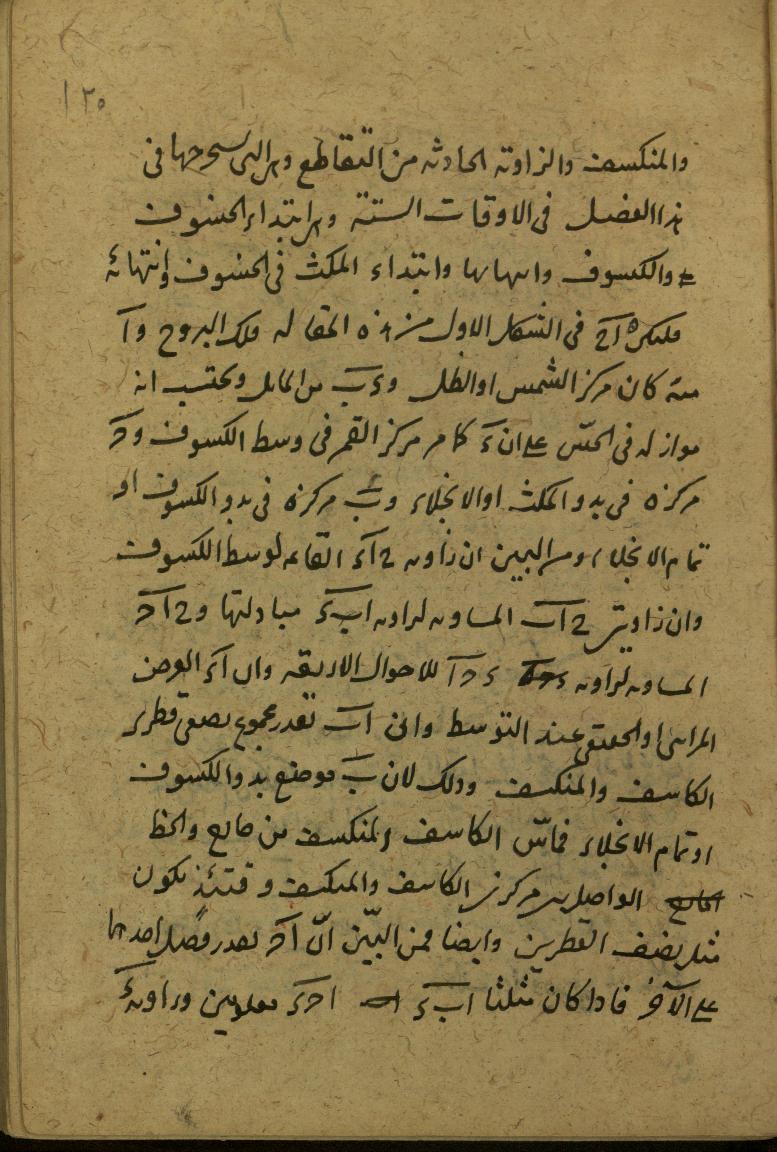 ١٢٥
والمنكسف والزاوية الحادثة من التقاطع وهي التي نستخرجها في
هذا الفصل في الاوقات الستة وهي ابتداء الخسوف
والكسوف وانتهائها وابتداء المكث في الخسوف وانتهائه
فليكن ح في الشكل الاول من هذه المقالة فلك البروج وآ
منه كان مركز الشمس او الظل و ءب من المايل ونحتسب انه
مواز له في الحس على ان ء كما مر مركز القمر في وسط الكسوف و حـ
مركزه في بدو المكث او الانجلاء و ب مركزه في بدو الكسوف او
تمام الانجلاء ومن البين ان زاوية ح آ ء القائمة لوسط الكسوف
وان زاويتي ح آ ب المساوية لزاوية ا ب ء مبادلتها و ح آ حـ
المساوية لزاوية ء حـ آ للاحوال الاربعة وان آ ء العرض
المرئي او الحقيقي عند التوسط وان ا ب بقدر مجموع نصفي قطري
الكاسف والمنكسف وذلك لان ب موضع بدو الكسوف
او تمام الانجلاء تماس الكاسف المنكسف من خارج والخط
الواصل بين مركزي الكاسف والمنكسف وقتئذ يكون
مثل نصف القطرين وايضا فمن البيّن انّ آ حـ بقدر فضل احدهما
على الآخر فاذا كان مثلثا ا ب ء ا حـ ء معلومين وزاوية ء